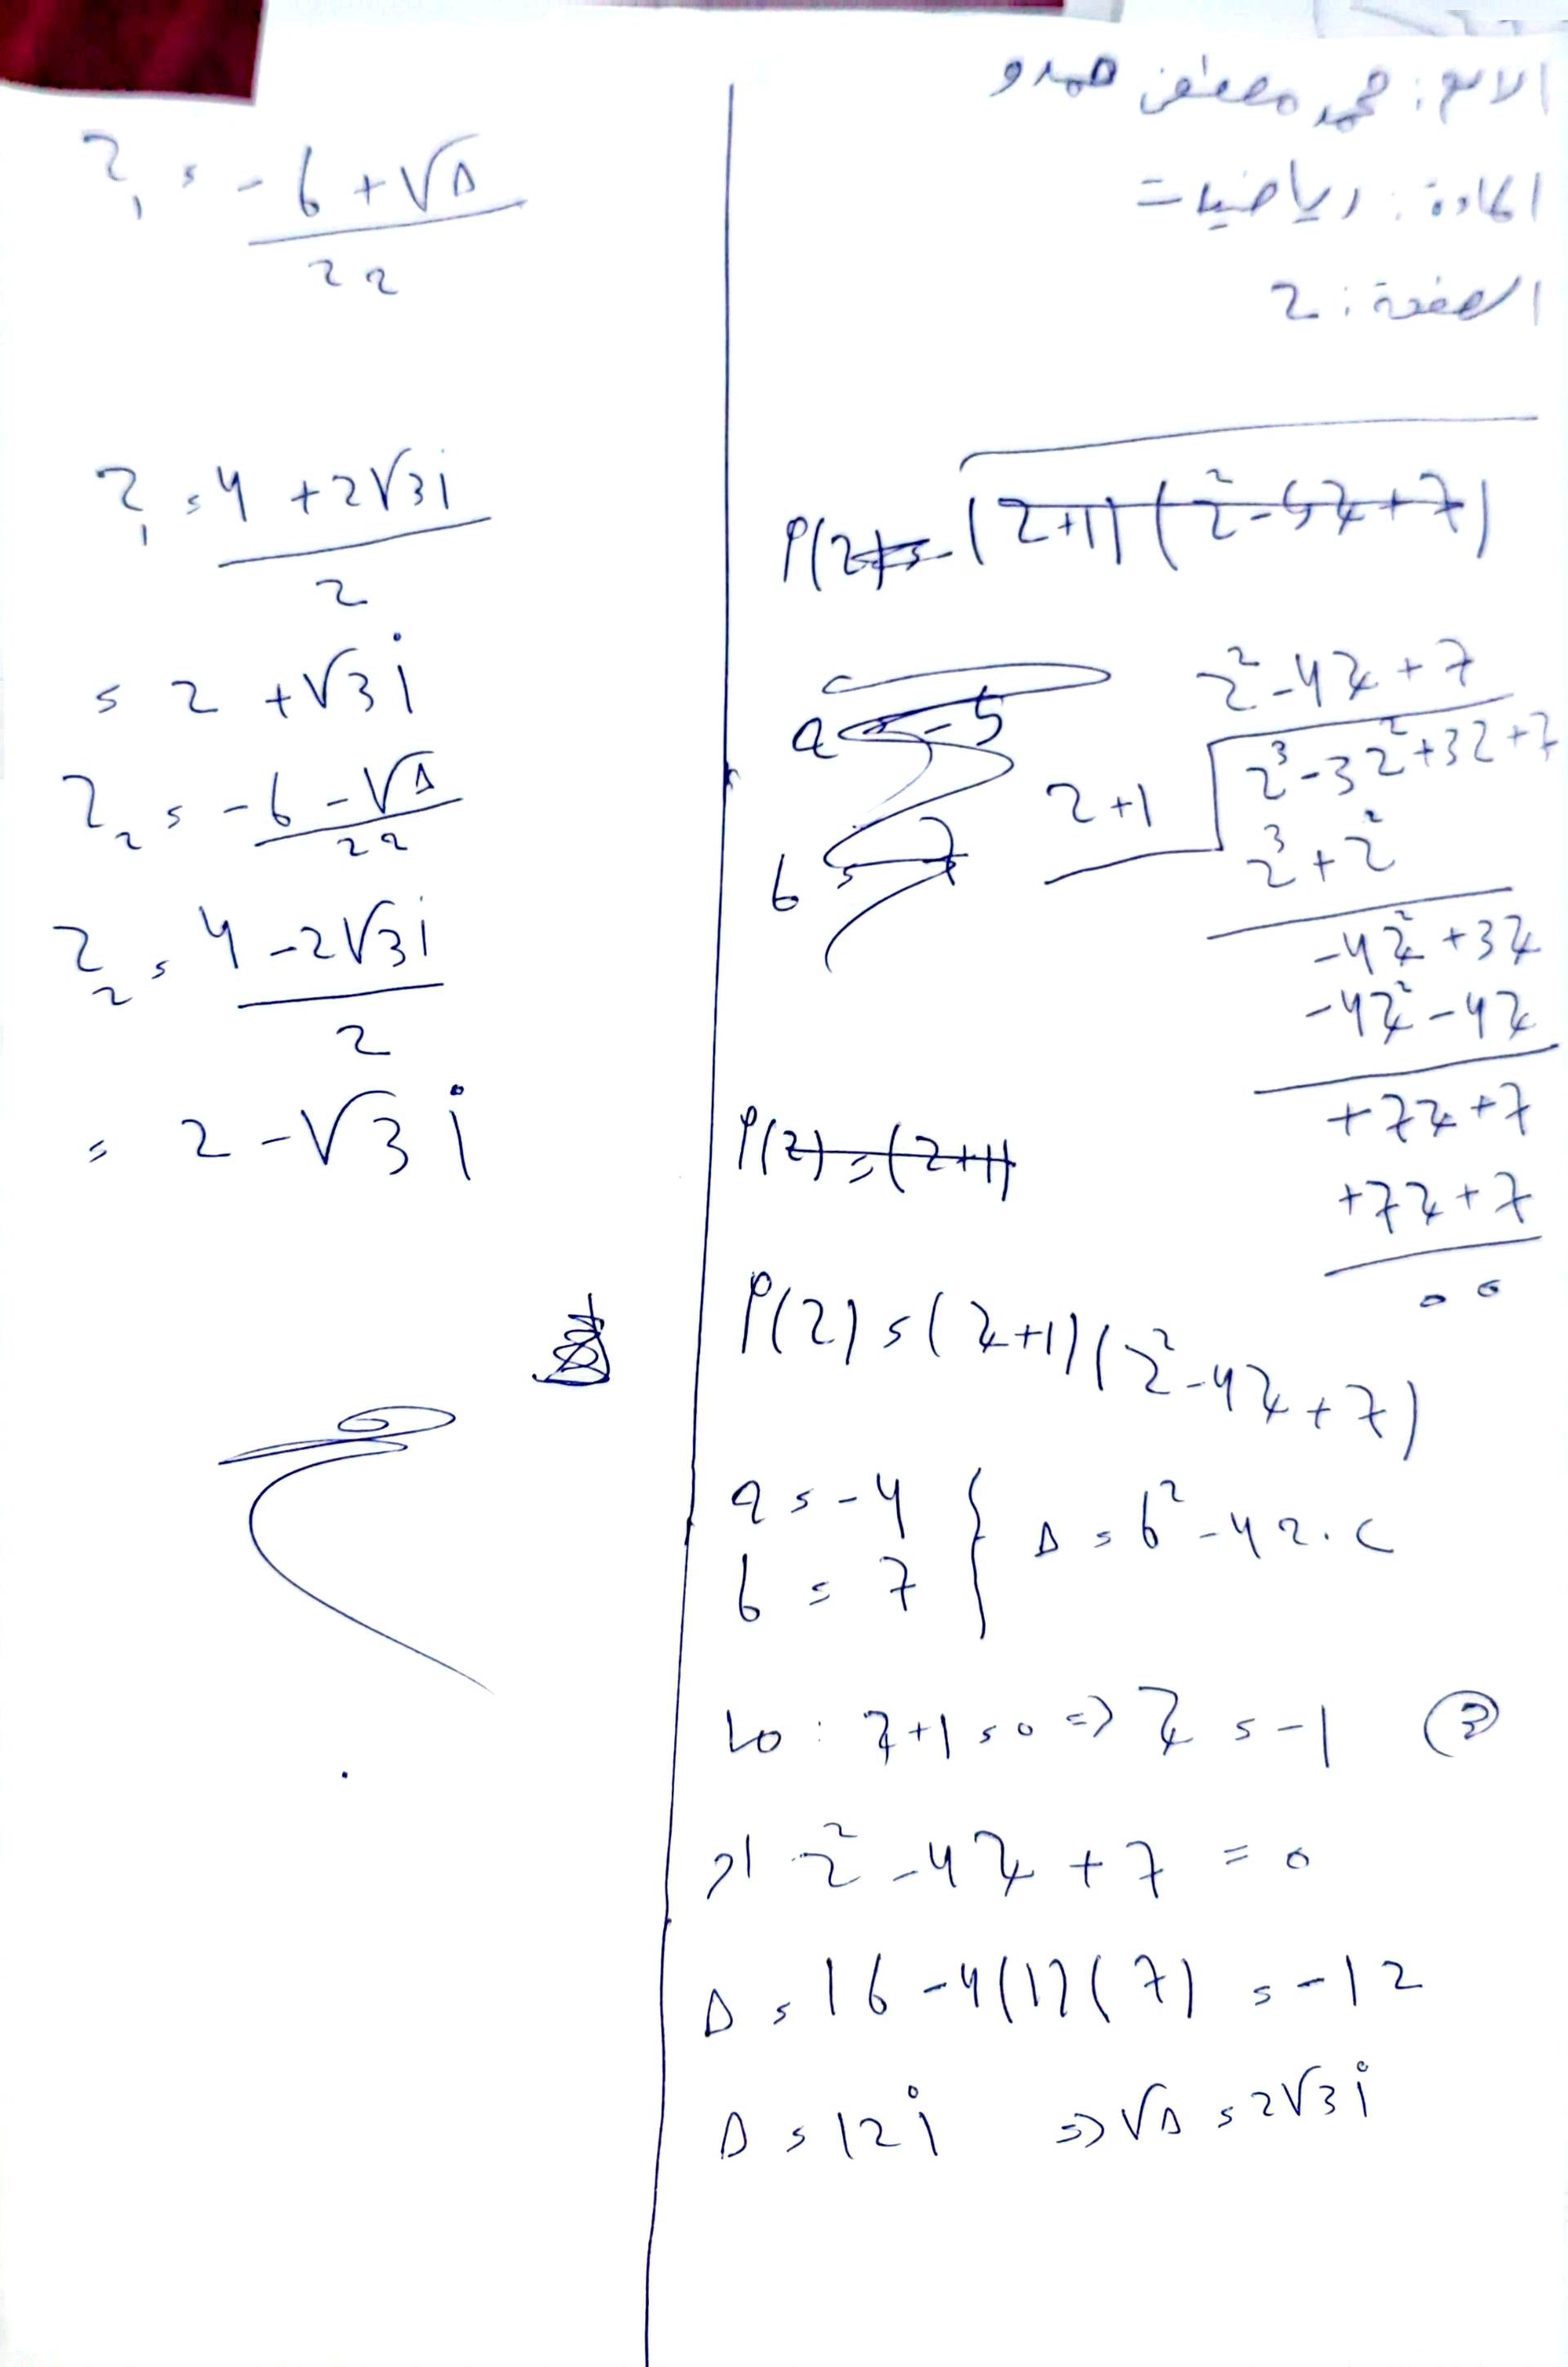 الاسم: محمد مصطفى حمدو
المادة: رياضيات
الصفحة: 2
P(z) = (z+1)(z²-5z+7)
a = -5
b = 7
z²-4z+7
z+1
z³-3z²+3z+7
z³+z²
-4z²+3z
-4z²-4z
+7z+7
+7z+7
0 0
P(z) = (z+1)
P(z) = (z+1)(z²-4z+7)
a = -4
b = 7
Δ = b²-4a.c
لما: z+1 = 0 => z = -1
z²-4z+7 = 0
Δ = 16-4(1)(7) = -12
Δ = 12i => √Δ = 2√3i
z₁ = -b+√Δ
2a
z₁ = 4+2√3i
2
= 2+√3i
z₂ = -b-√Δ
2a
z₂ = 4-2√3i
2
= 2-√3i